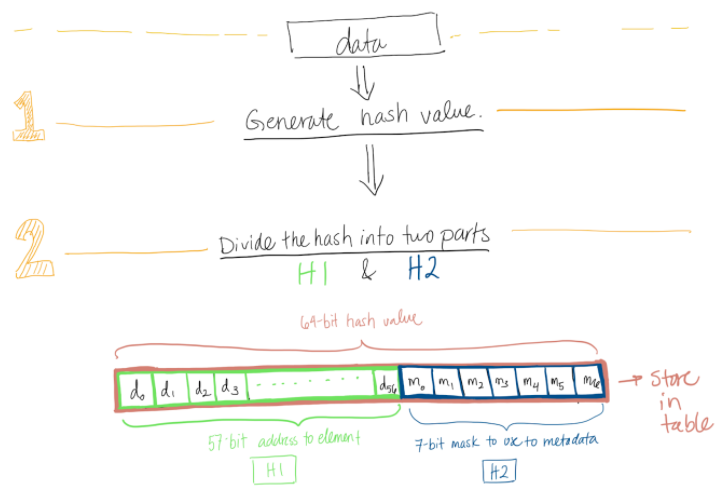 data
1
Generate hash value.
2
Divide the hash into two parts
H1 & H2
64-bit hash value
d0 d1 d2 d3 - - - - - - - - d56 m0 m1 m2 m3 m4 m5 m6
→ Store
in
table
57-bit address to element
7-bit mask to use to metadata
H1
H2